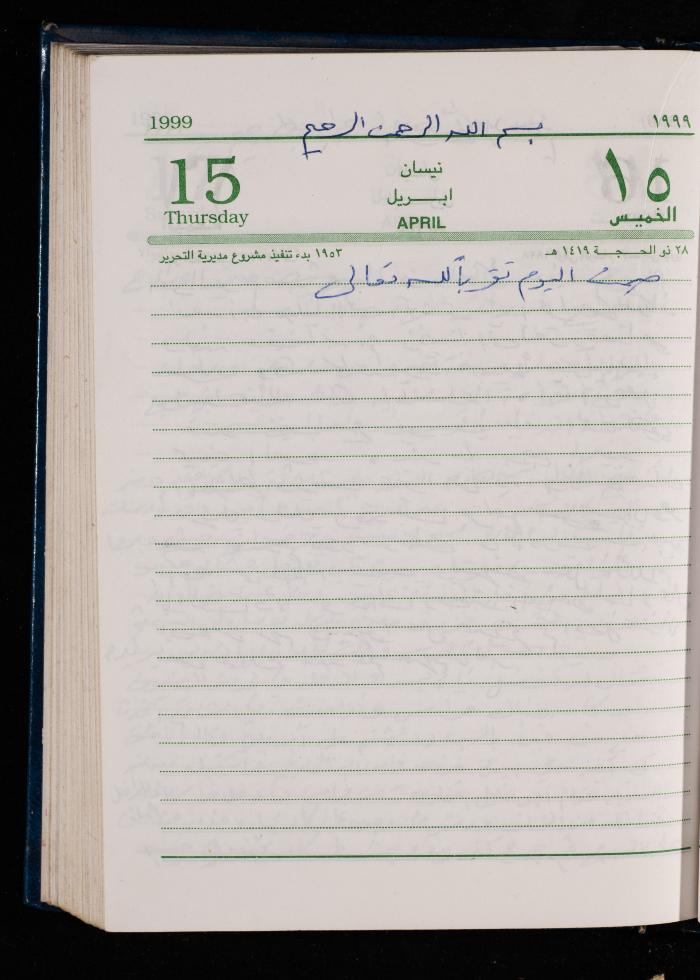 1999 بسم الله الرحمن الرحيم ١٩٩٩
15 نيسان ١٥
Thursday ابـــريل الخميس
APRIL
٢٨ ذو الحـــجـــة ١٤١٩ هـ ١٩٥٣ بدء تنفيذ مشروع مديرية التحرير
صمت اليوم تقرباً لله تعالى